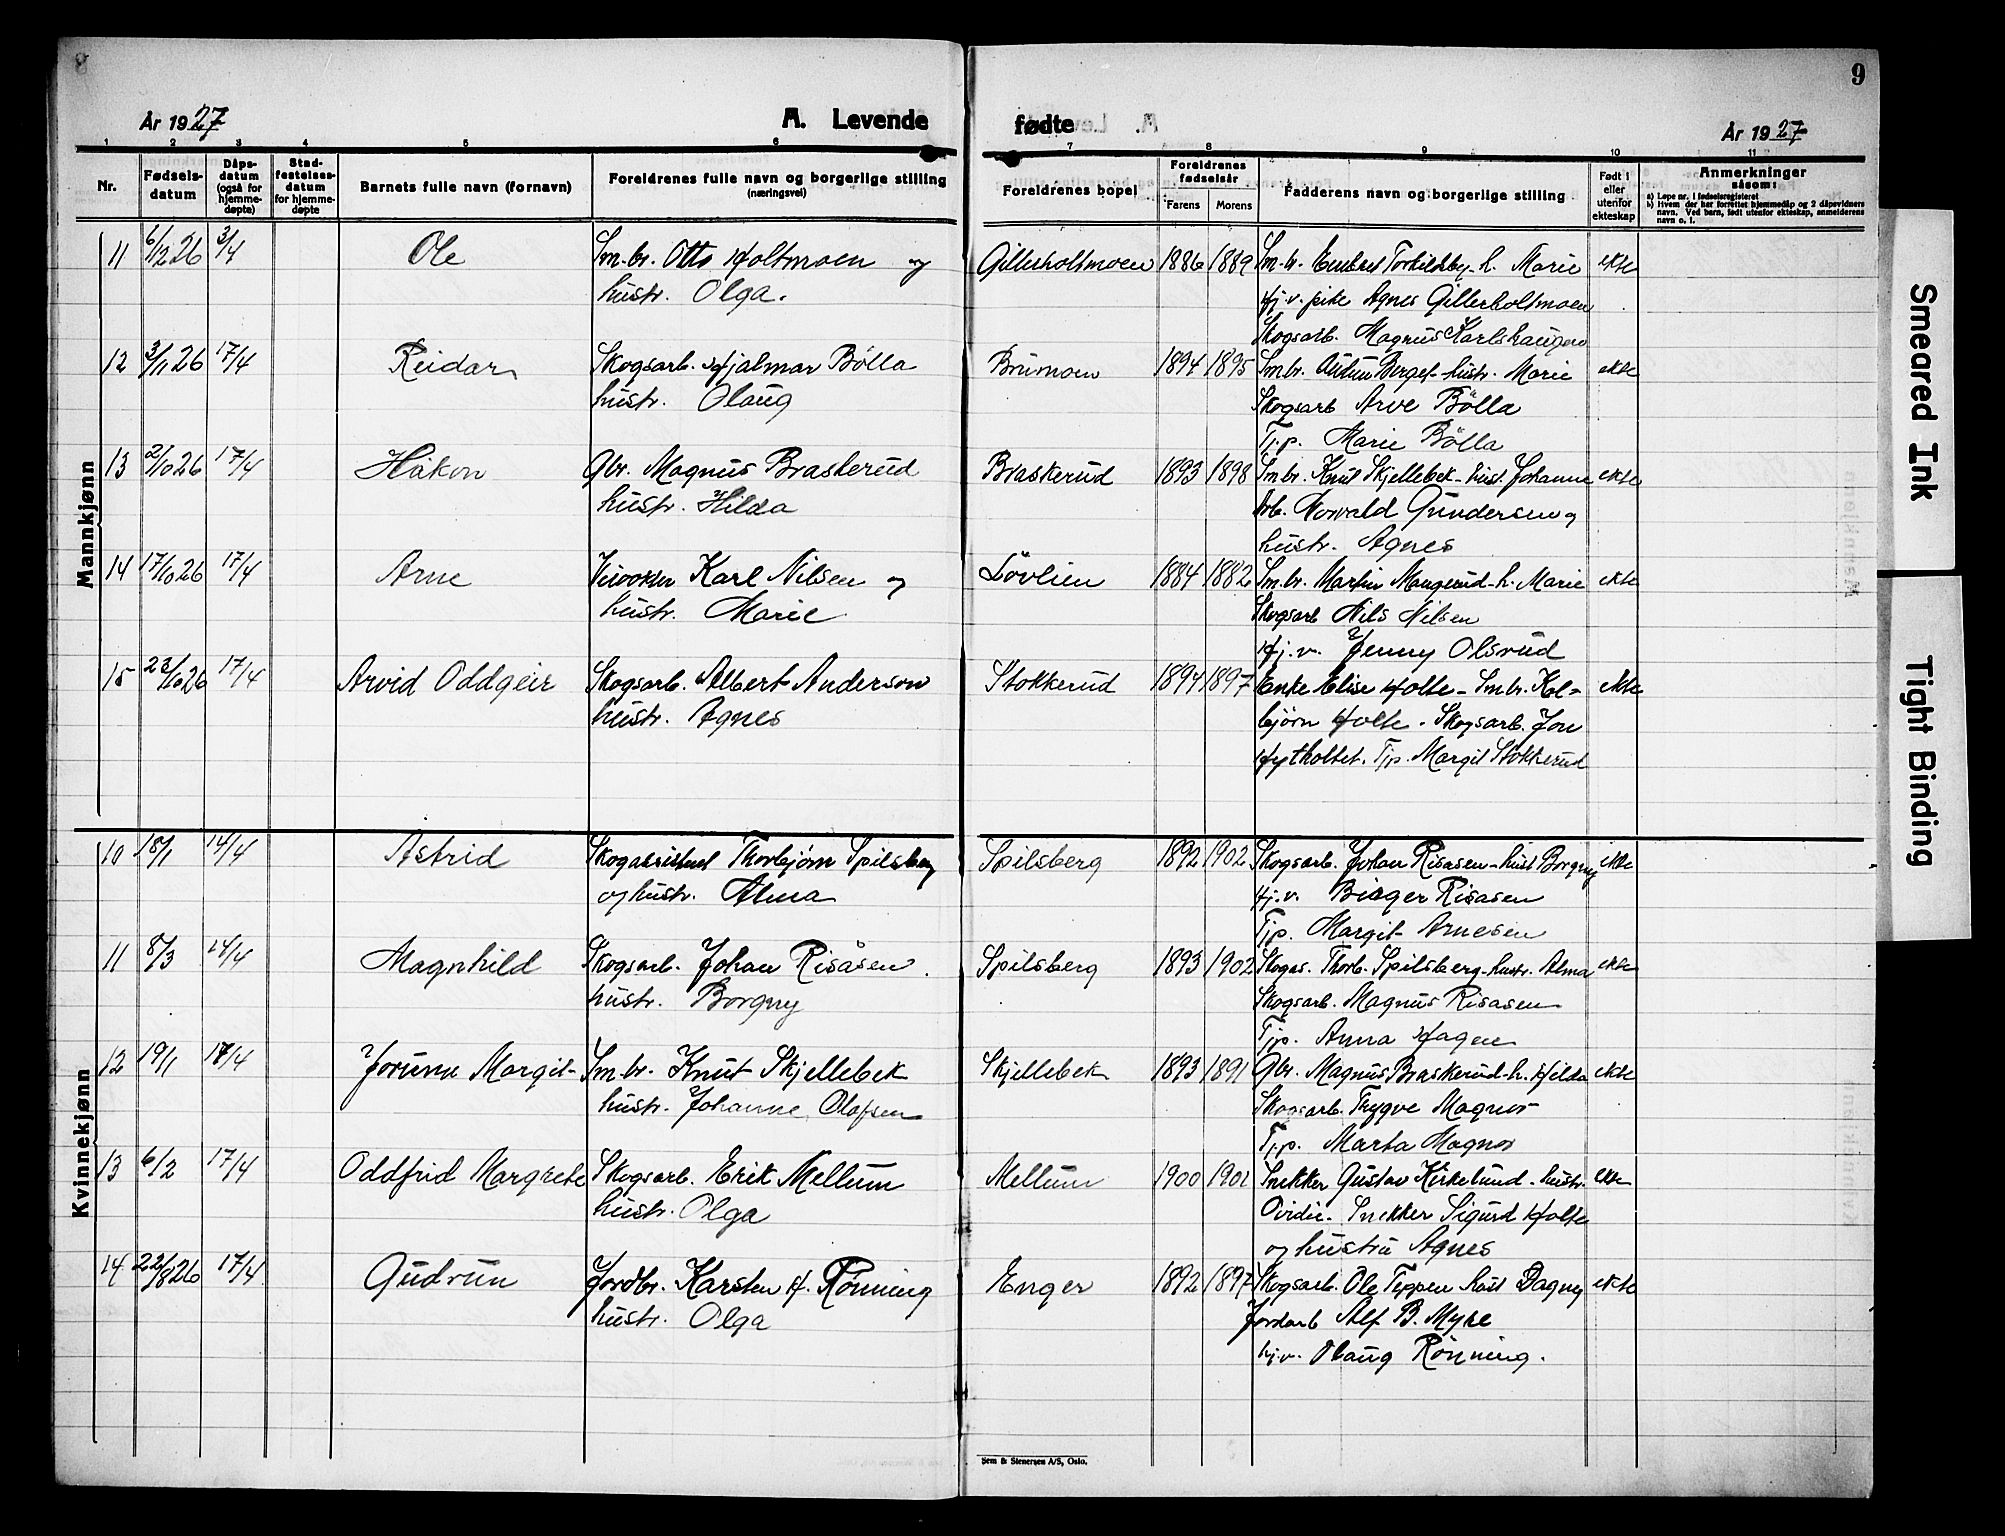 9
År 1927
A. Levende
fødte
År 1927
1 2 3 4 5 6 7 8 9 10 11
Nr.
Fødsels-
datum
Dåps-
datum
(også for
hjemme-
døpte)
Stad-
festelses-
datum
for hjemme-
døpte
Barnets fulle navn (fornavn)
Foreldrenes fulle navn og borgerlige stilling
(næringsvei)
Foreldrenes bopel
Foreldrenes
fødselsår
Farens Morens
Fadderens navn og borgerlige stilling
Født i
eller
utenfor
ekteskap
Anmerkninger
såsom:
a) Løpe nr. i fødselsregisteret
b) Hvem der har forrettet hjemmedåp og 2 dåpsvidners
navn. Ved barn, født utenfor ekteskap, anmelderens
navn o. l.
Mannkjønn
11 6/12 26 3/4 Ole Sm.br. Otto Holtmoen og Gillerholtmoen 1886 1889 Sm.br. Torkildsby - h. Marie ekte
hustr. Olga. Hj.v. pike Agnes Gillerholtmoen
Skogsarb. Magnus Karlshaugen
12 3/11 26 17/4 Reidar Skogsarb. Hjalmar Bölla Brumoen 1894 1895 Sm.br. Audun Berget - hustr. Marie ekte
hustr. Olaug Skogsarb Arve Bölla
Tj.p. Marie Bölla
13 2/10 26 17/4 Håkon Gbr. Magnus Braskerud Braskerud 1893 1898 Sm.br. Knut Skjellebek - hust. Johanne ekte
hustr. Hilda Arb. Norvald Gundersen og
hustr. Agnes
14 17/10 26 17/4 Arne Karl Nilsen og Lövlien 1884 1882 Sm.br. Martin Maugerud - h. Marie ekte
hustr. Marie Skogsarb Nils Nilsen
Hj.v. Jenny Olsrud
15 23/10 26 17/4 Arvid Oddgeir Skogsarb. Albert Anderson Stokkerud 1894 1897 Enke Elise Holte - Sm.br. Kol-
hustr. Agnes ekte
björn Holte. Skogsarb. Jon
Hytholtet. Tjp. Margit Stokkerud
Kvinnekjønn
10 18/1 14/4 Astrid Skogassistent Thorbjörn Spilsberg Spilsberg 1892 1902 Skogsarb. Johan Risasen - hust Borgny ekte
og hustr. Alma Hj.v. Birger Risasen
Tjp. Margit Arnesen
11 8/3 14/4 Magnhild Skogsarb. Johan Risåsen. Spilsberg 1893 1902 Skogas. Thorb. Spilsberg - hustr. Alma ekte
hustr. Borgny Skogsarb. Magnus Risasen
Tjp. Anna Hagen
12 19/1 17/4 Jorunn Margit Sm.br. Knut Skjellebek Skjellebek 1893 1891 Gbr. Magnus Braskerud - h. Hilda ekte
hustr. Johanne Olafsen Skogsarb. Trygve Magnor
Tj.p. Marta Magnor
13 6/2 17/4 Oddfrid Margrete Skogsarb. Erik Mellum Mellum 1900 1901 Snekker Gustav Kirkelund - hustr. ekte
hustr. Olga Ovidie - Snekker Sigurd Holte
og hustru Agnes
14 22/8 26 17/4 Gudrun Jordbr. Karsten H. Rønning Enger 1892 1897 Skogsarb. Ole Teppen hust Dagny ekte
hustr. Olga Jordarb Alf B. Myre
hj.v. Olaug Rønning.
Sem & Stenersen A/S, Oslo.
Smeared Ink
Tight Binding